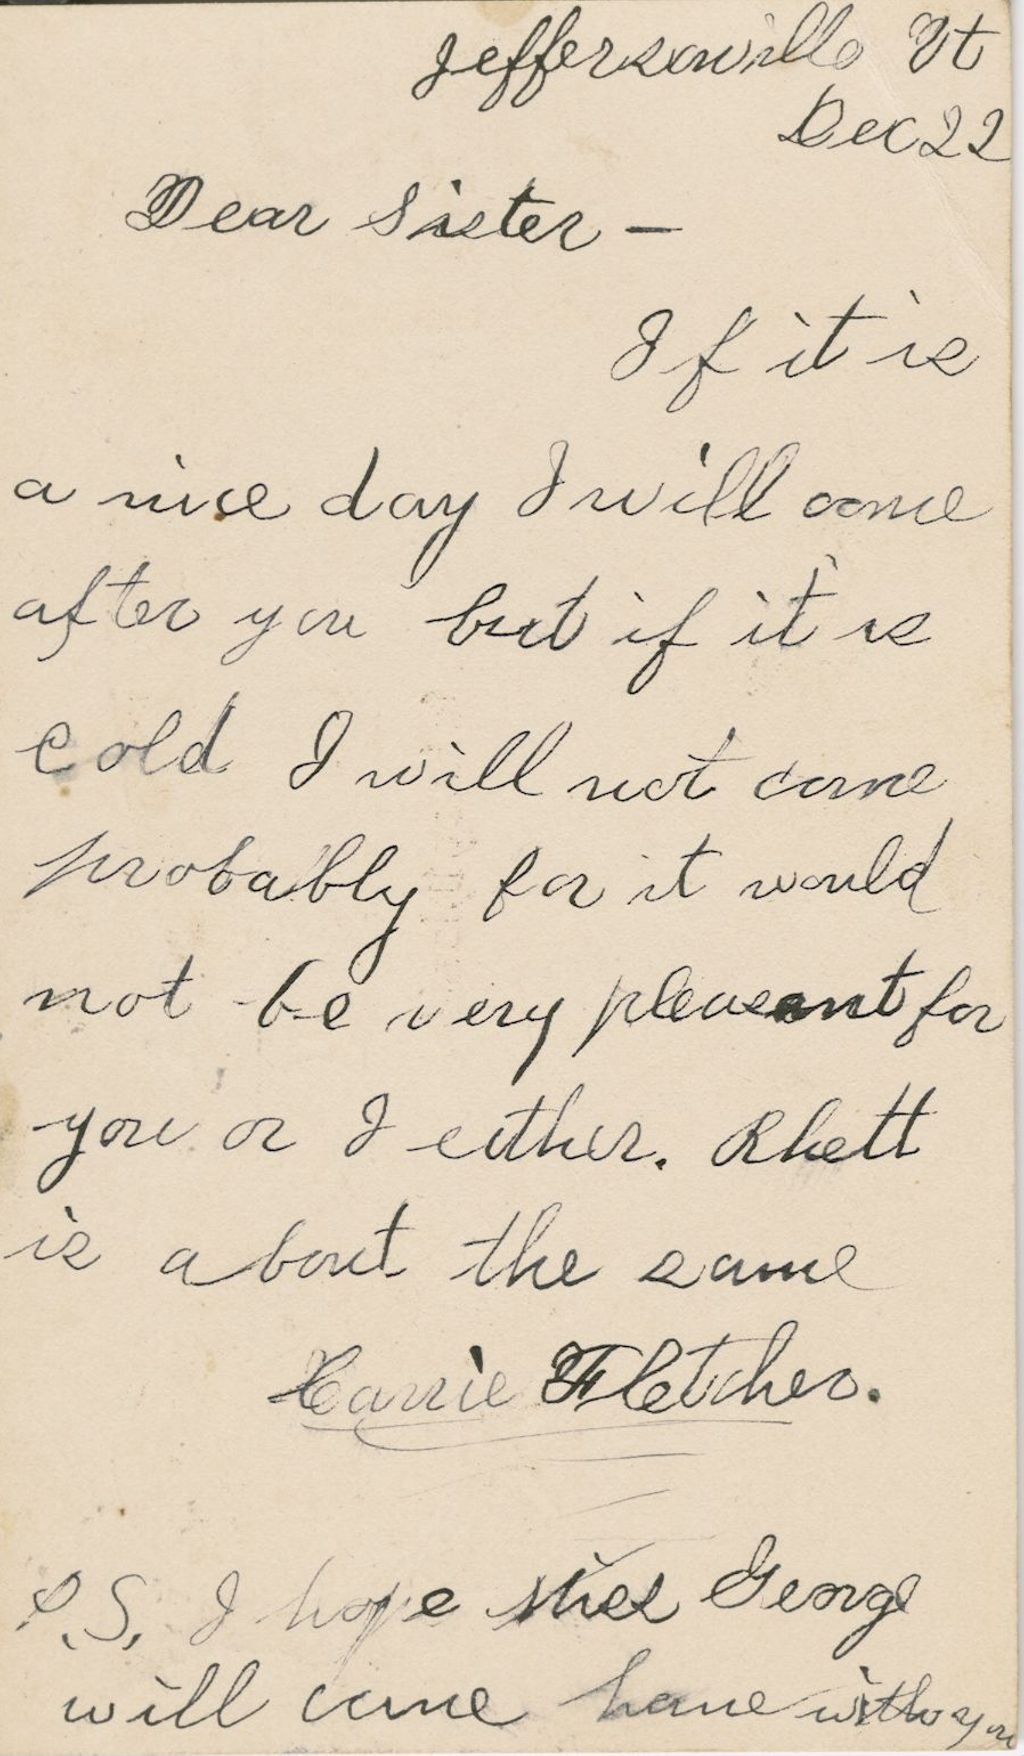 Jeffersonville Vt
Dec 22
Dear Sister –
If it is
a nice day I will come
after you but if it is
cold I will not come
probably for it would
not be very pleasant for
you or I either. Rhett
is about the same
Carrie Fletcher.
P.S. I hope George
will come home with you